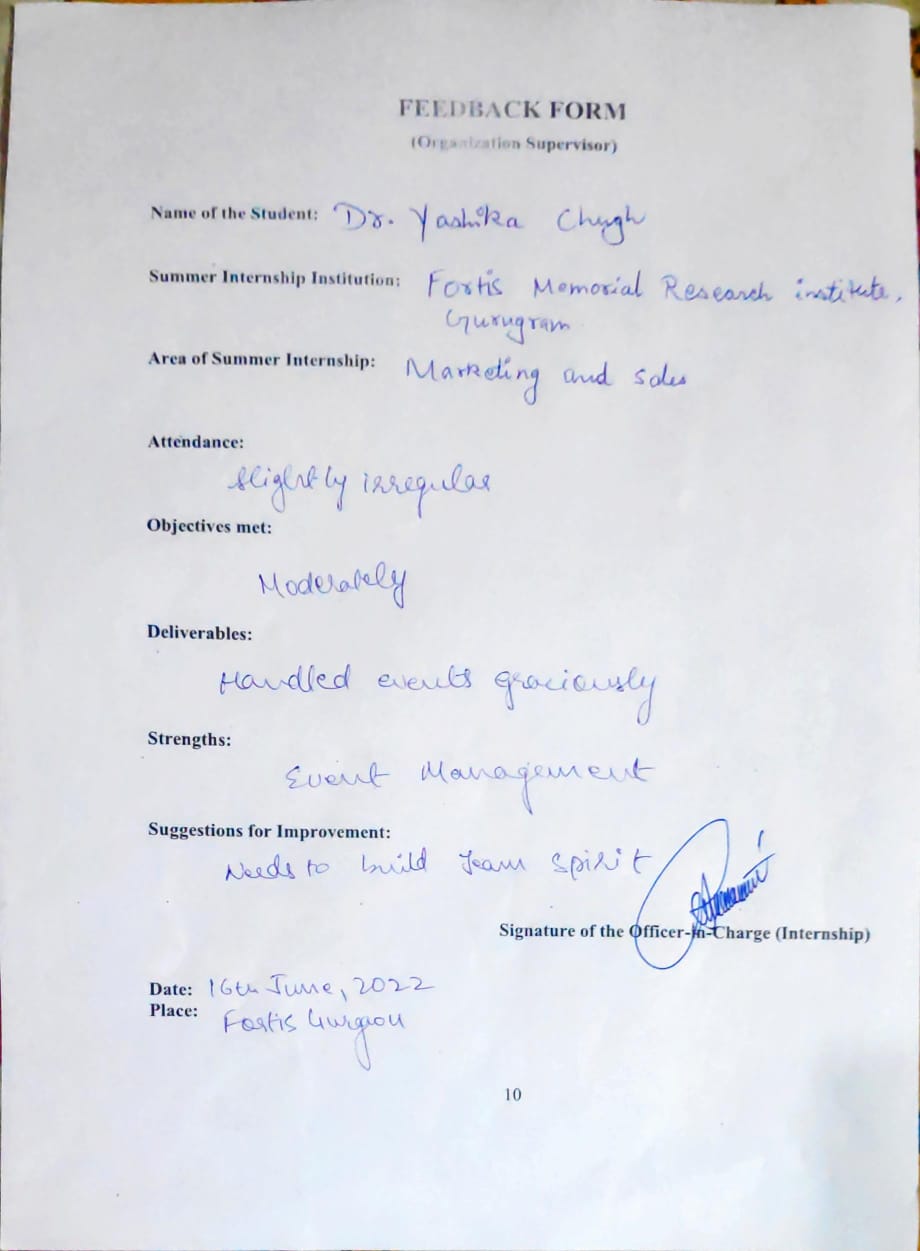 FEEDBACK FORM
(Organization Supervisor)
Name of the Student: Dr. Yashika Chugh
Summer Internship Institution: Fortis Memorial Research institute,
Gurugram
Area of Summer Internship: Marketing and sales
Attendance:
slightly irregular
Objectives met:
Moderately
Deliverables:
Handled events graciously
Strengths:
Event Management
Suggestions for Improvement:
Needs to build team spirit
Signature of the Officer-in-Charge (Internship)
Date: 16th June, 2022
Place: Fortis Gurgaon
10